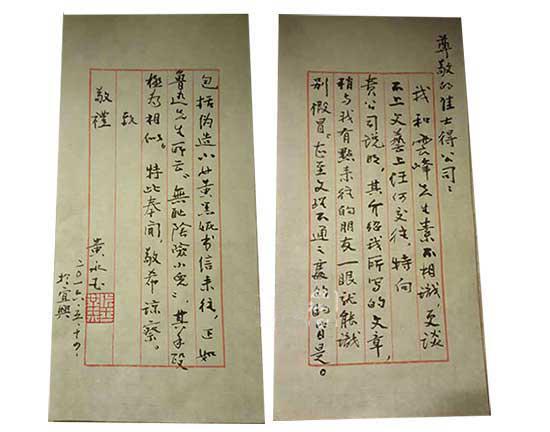 尊敬的佳士得公司：
我和雲峰先生素不相識，更談
不上文藝上任何交往，特向
貴公司说明，其介绍我所写的文章，
稍与我有點来往的朋友一眼就能識
别假冒。甚至文理不通之處的的皆是。
包括伪造小女黄黑妮书信来往，正如
鲁迅先生所云：無耻陰險小兒，其手段
極为相似。特此奉聞，敬希諒察。
致
敬禮
黄永玉
二〇一六.五.十九
於宜興